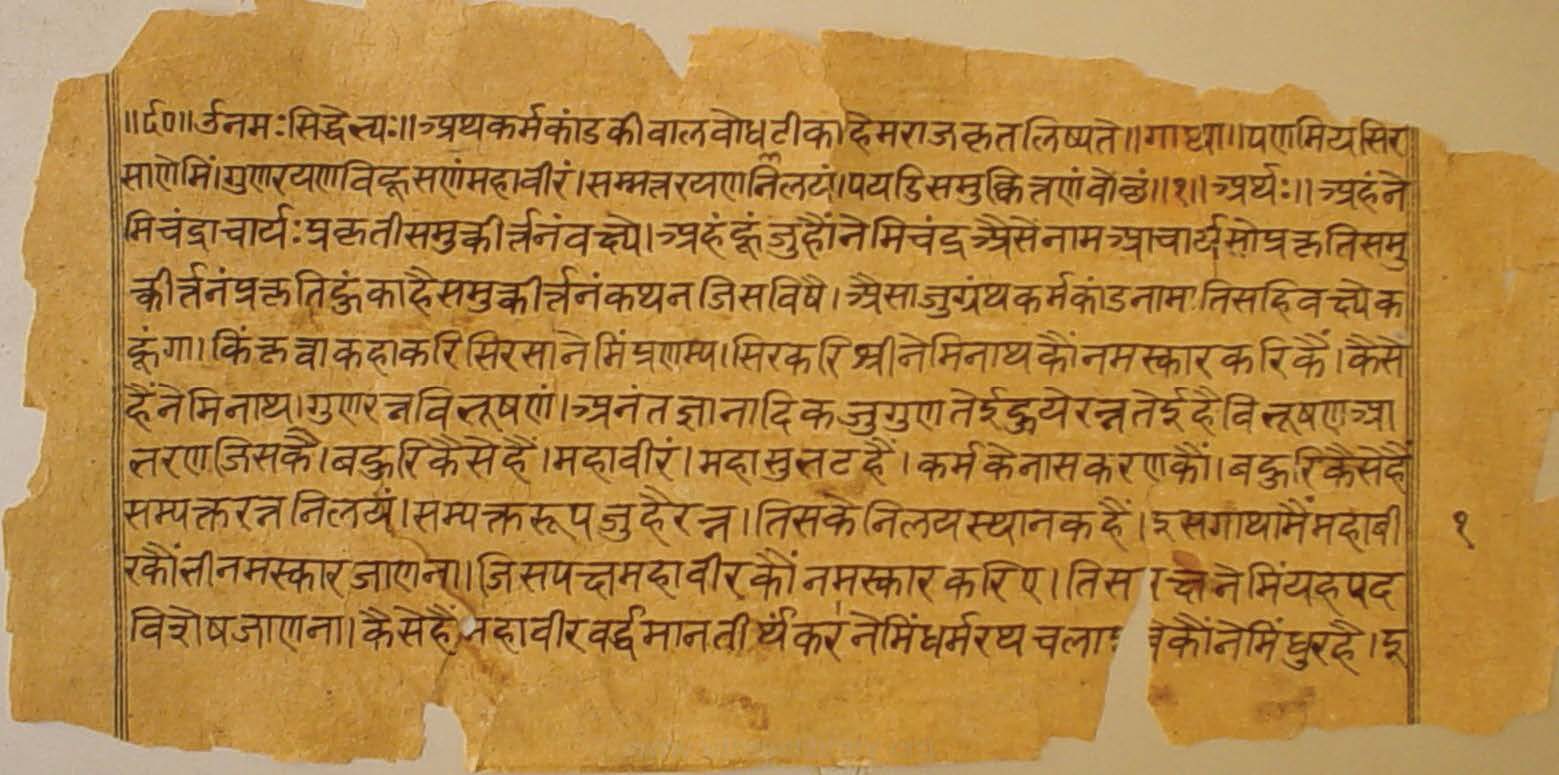 ॥र्द०॥ उंनमःसिद्धेभ्यः॥अथकर्मकांडकीवालवोधटीकाहेमराजकृतलिष्यते॥गाथा॥पणमियसिर
साणेमिं।गुणरयणविहूसणंमहावीरं।सम्मत्तरयणनिलयं।पयडिसमुक्कित्तणंवोछं॥१॥अर्थः॥अहंने
मिचंद्राचार्यःप्रकृतीसमुत्कीर्त्तनंवक्ष्ये।अहंहूंजुहौंनेमिचंद्रअैसेंनामआचार्यसोप्रकृतिसमु
त्कीर्त्तनंप्रकृतिहुंकाहैसमुत्कीर्त्तनंकथनजिसविषै।अैसाजुग्रंथकर्मकांडनामतिसहिवक्ष्येक
हूंगा।किंकृत्वाकहाकरिसिरसानेमिंप्रणम्य।सिरकरिश्रीनेमिनाथकौंनमस्कारकरिकैं।कैसे
हैंनेमिनाथ।गुणरत्नविभूषणं।अनंतज्ञानादिकजुगुणतेईहुयेरत्नतेईहैविभूषणआ
भरणजिसकै।बहुरिकैसेहैं।महावीरं।महासुभटहैं।कर्मकेनासकरणकौं।बहुरिकैसेहैं
सम्यक्तरत्ननिलयं।सम्यक्तरूपजुहैरत्न।तिसकेनिलयस्थानकहैं।इसगाथामैंमहावी १
रकौंभीनमस्कारजाणना।जिसपक्षमहावीरकौंनमस्कारकरिए।तिस नेमिंयहपद
विशेषजाणना।कैसेहैं महावीरवर्द्धमानतीर्थंकरंनेमिंधर्मरथचला कौंनेमिंधुरहै।इ